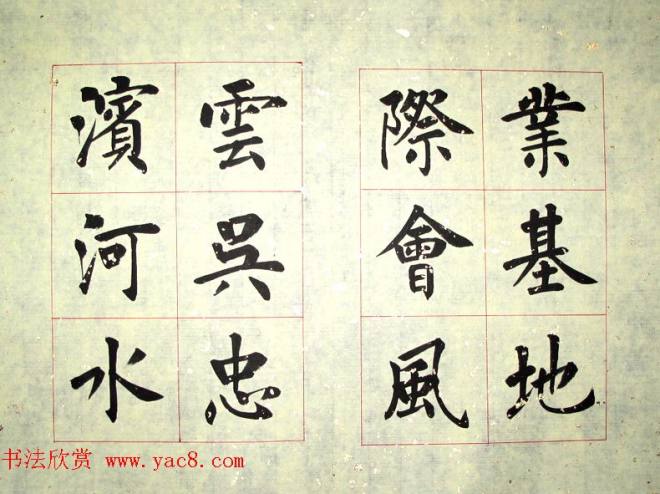 業基地
際會風
雲吳忠
濱河水
书法欣赏 www.yac8.com